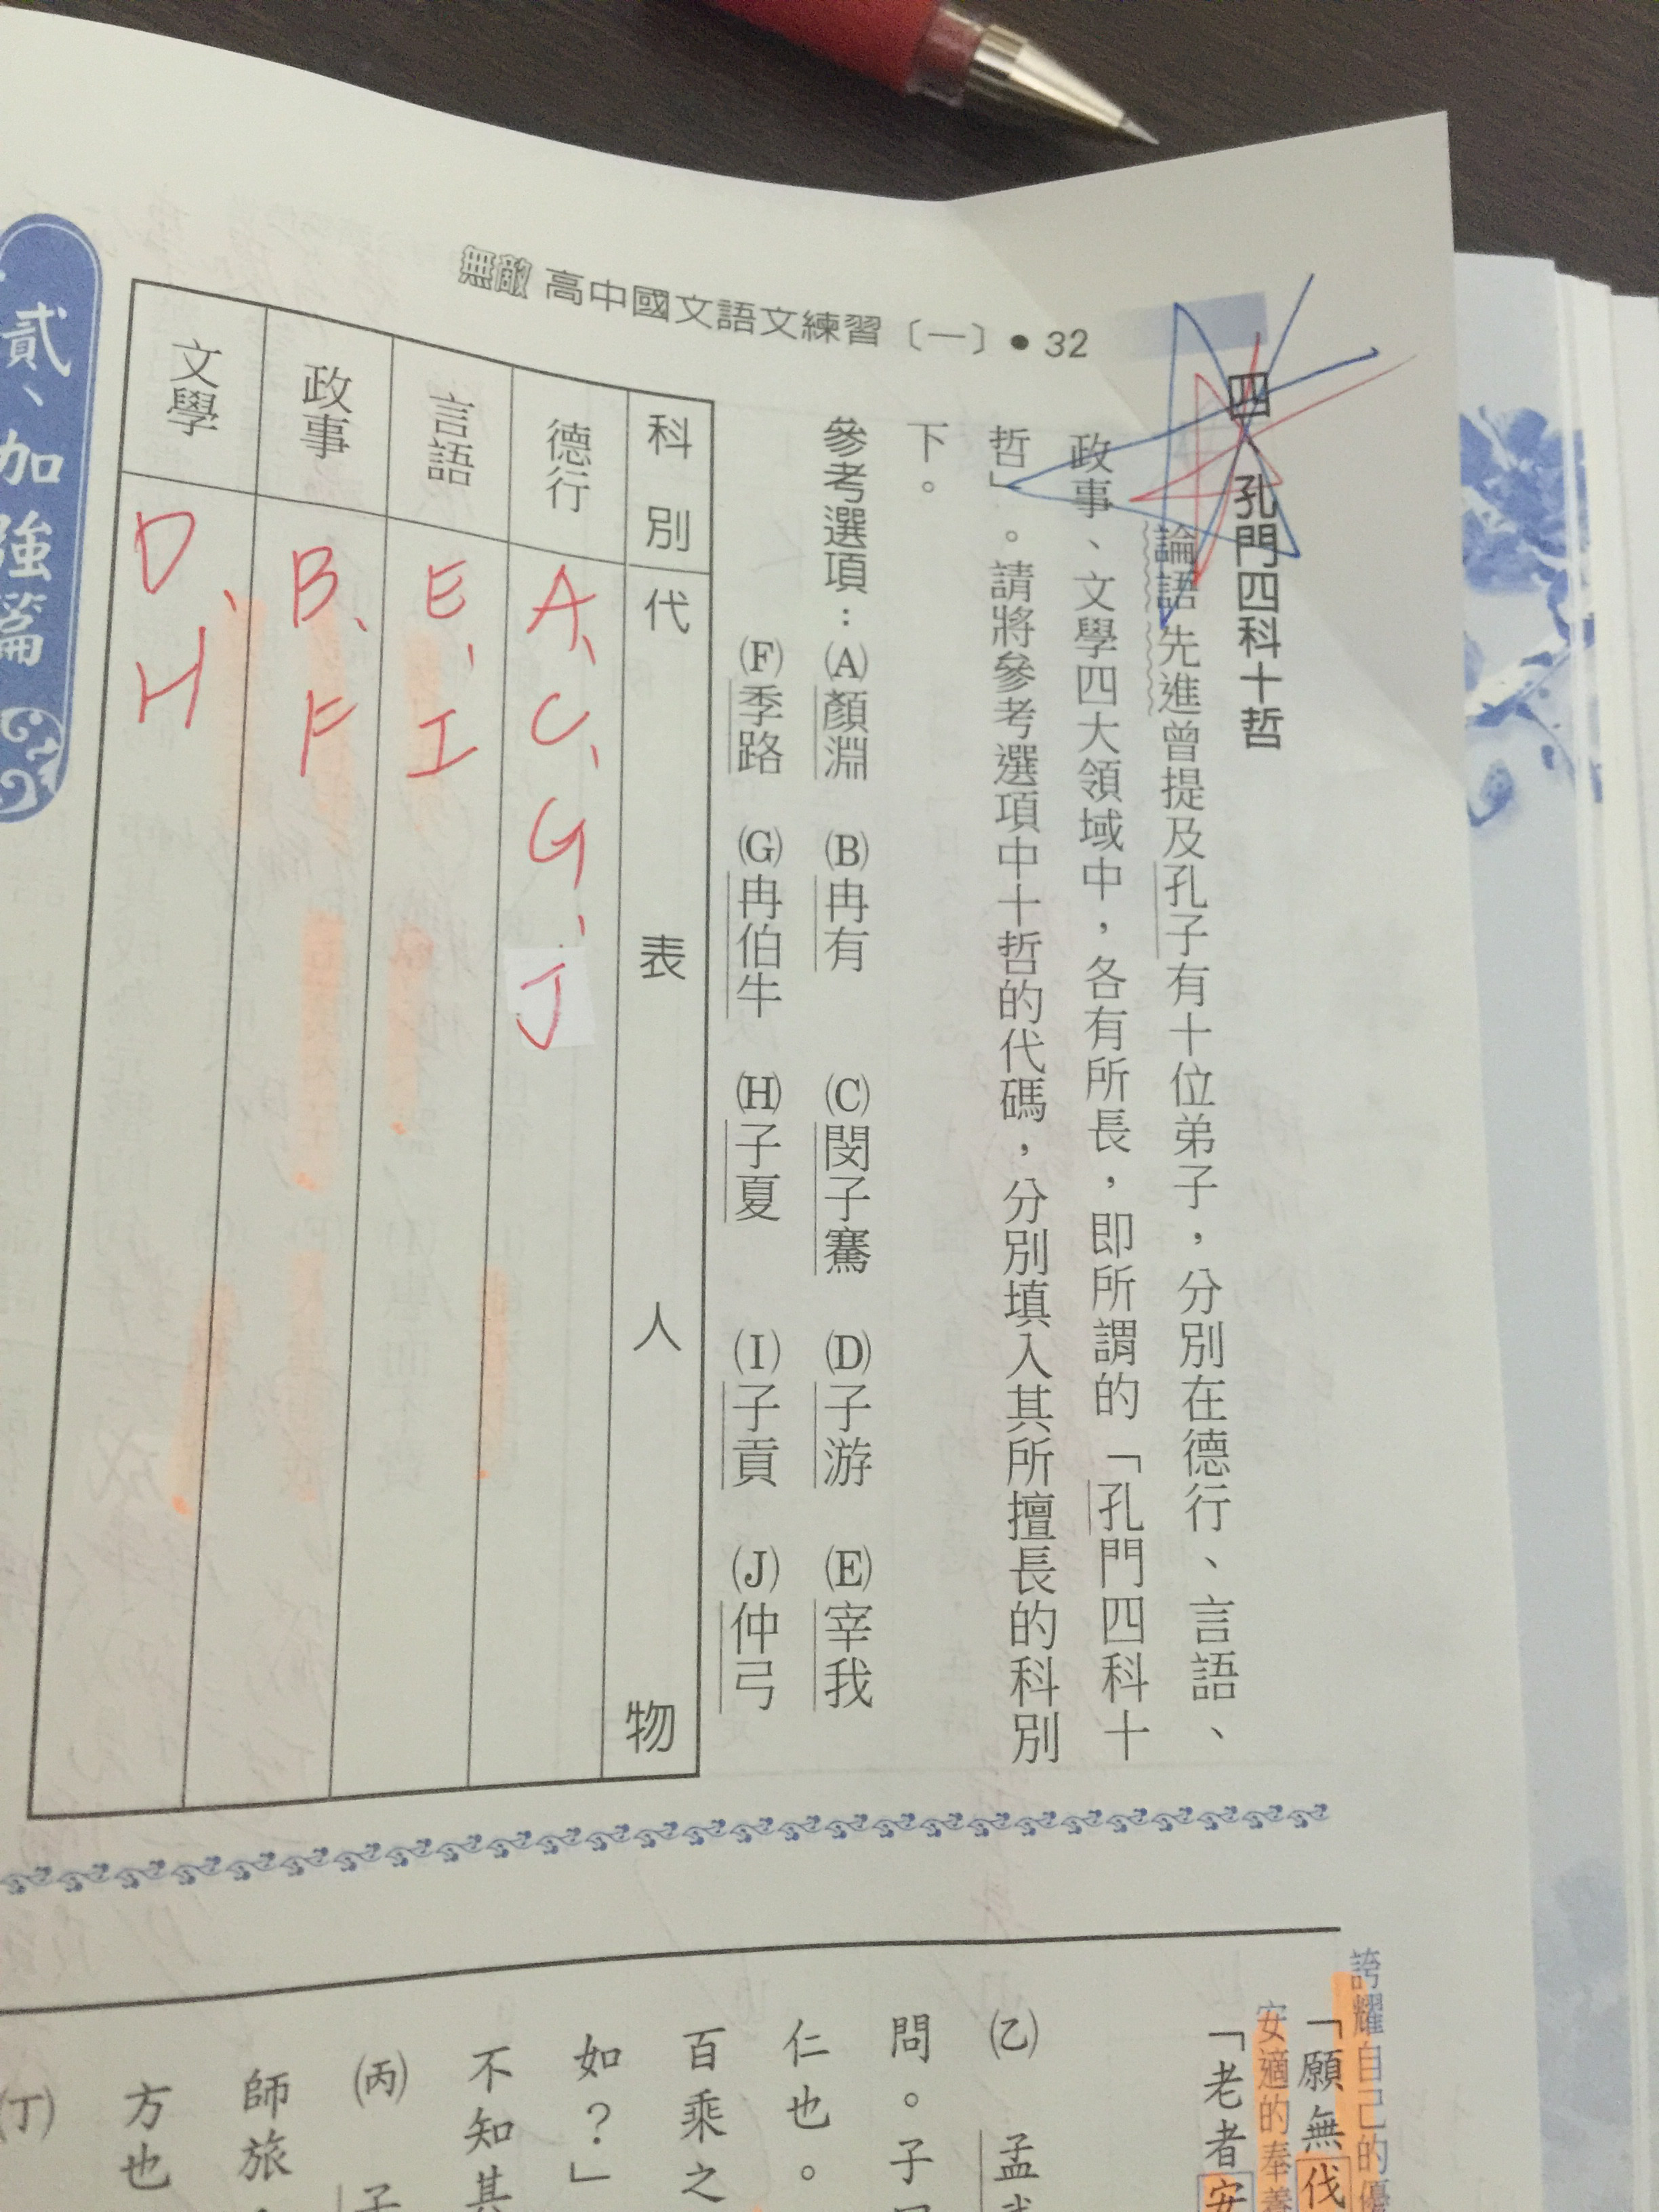 無敵 高中國文語文練習〔一〕•32
四、孔門四科十哲
論語先進曾提及孔子有十位弟子，分別在德行、言語、
政事、文學四大領域中，各有所長，即所謂的「孔門四科十
哲」。請將參考選項中十哲的代碼，分別填入其所擅長的科別
下。
參考選項：(A)顏淵 (B)冉有 (C)閔子騫 (D)子游 (E)宰我
(F)季路 (G)冉伯牛 (H)子夏 (I)子貢 (J)仲弓
科別 代表人物
德行 A、C、G、J
言語 E、I
政事 B、F
文學 D、H
貳、加強篇
誇耀自己的優
「願無伐
安適的奉養
「老者安
(乙) 孟
問。子
仁也。
百乘之
如？」
不知其
(丙) 子
師旅
方也
(丁)